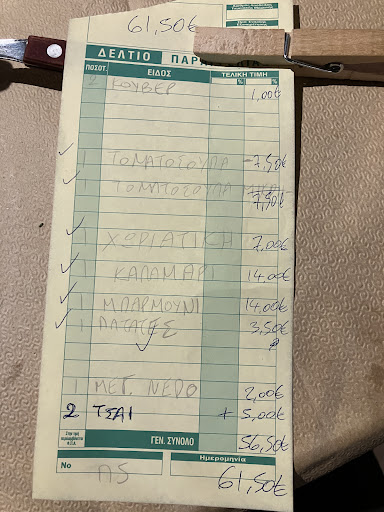 61,50€
ΔΕΛΤΙΟ ΠΑΡ
ΠΟΣΟΤ. ΕΙΔΟΣ ΤΕΛΙΚΗ ΤΙΜΗ
% %
2 ΚΟΥΒΕΡ 1,00€
1 ΤΟΜΑΤΟΣΟΥΠΑ 7,50€
1 ΤΟΜΑΤΟΣΟΥΠΑ 7,50€
1 ΧΩΡΙΑΤΙΚΗ 7,00€
1 ΚΑΛΑΜΑΡΙ 14,00€
1 ΜΠΑΡΜΟΥΝΙ 14,00€
1 ΠΑΤΑΤΕΣ 3,50€
1 ΜΕΓ. ΝΕΡΟ 2,00€
2 ΤΣΑΙ + 5,00€
ΓΕΝ. ΣΥΝΟΛΟ 56,50€
Νο Ημερομηνία
61,50€